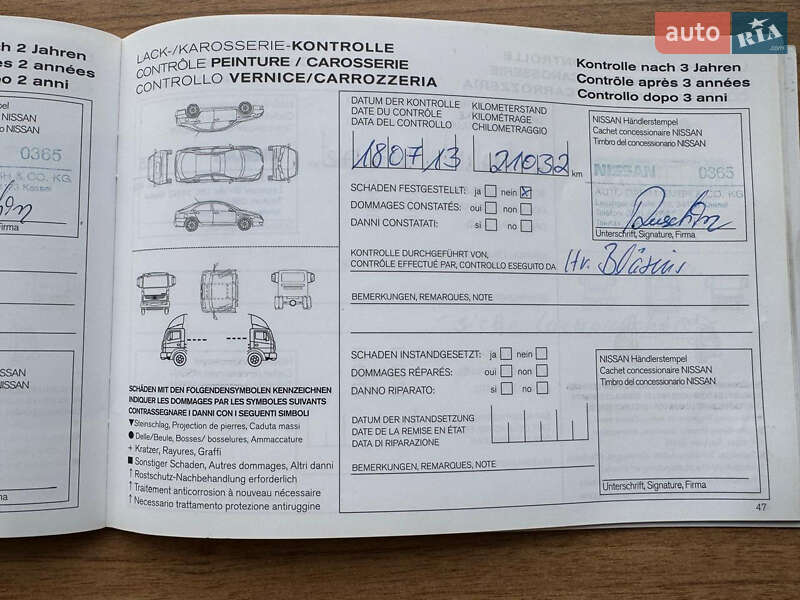 auto RIA .com
ch 2 Jahren
ès 2 années
po 2 anni
rstempel
e NISSAN
rio NISSAN
0365
H & CO. KG
Firma
rstempel
NISSAN
NISSAN
irma
LACK-/KAROSSERIE-KONTROLLE
CONTRÔLE PEINTURE / CAROSSERIE
CONTROLLO VERNICE/CARROZZERIA
Kontrolle nach 3 Jahren
Contrôle après 3 années
Controllo dopo 3 anni
DATUM DER KONTROLLE
DATE DU CONTRÔLE
DATA DEL CONTROLLO
KILOMETERSTAND
KILOMÉTRAGE
CHILOMETRAGGIO
18 07 13
21032 km
NISSAN Händlerstempel
Cachet concessionaire NISSAN
Timbro del concessionario NISSAN
NISSAN 0365
Unterschrift, Signature, Firma
SCHADEN FESTGESTELLT: ja nein x
DOMMAGES CONSTATÉS: oui non
DANNI CONSTATATI: si no
KONTROLLE DURCHGEFÜHRT VON,
CONTRÔLE EFFECTUÉ PAR, CONTROLLO ESEGUITO DA Hr.
BEMERKUNGEN, REMARQUES, NOTE
SCHADEN INSTANDGESETZT: ja nein
DOMMAGES RÉPARÉS: oui non
DANNO RIPARATO: si no
DATUM DER INSTANDSETZUNG
DATE DE LA REMISE EN ÉTAT
DATA DI RIPARAZIONE
BEMERKUNGEN, REMARQUES, NOTE
NISSAN Händlerstempel
Cachet concessionaire NISSAN
Timbro del concessionario NISSAN
Unterschrift, Signature, Firma
SCHÄDEN MIT DEN FOLGENDENSYMBOLEN KENNZEICHNEN
INDIQUER LES DOMMAGES PAR LES SYMBOLES SUIVANTS
CONTRASSEGNARE I DANNI CON I SEGUENTI SIMBOLI
▼Steinschlag, Projection de pierres, Caduta massi
● Delle/Beule, Bosses/ bosselures, Ammaccature
+ Kratzer, Rayures, Graffi
■ Sonstiger Schaden, Autres dommages, Altri danni
↑ Rostschutz-Nachbehandlung erforderlich
↑ Traitement anticorrosion à nouveau nécessaire
↑ Necessario trattamento protezione antiruggine
47